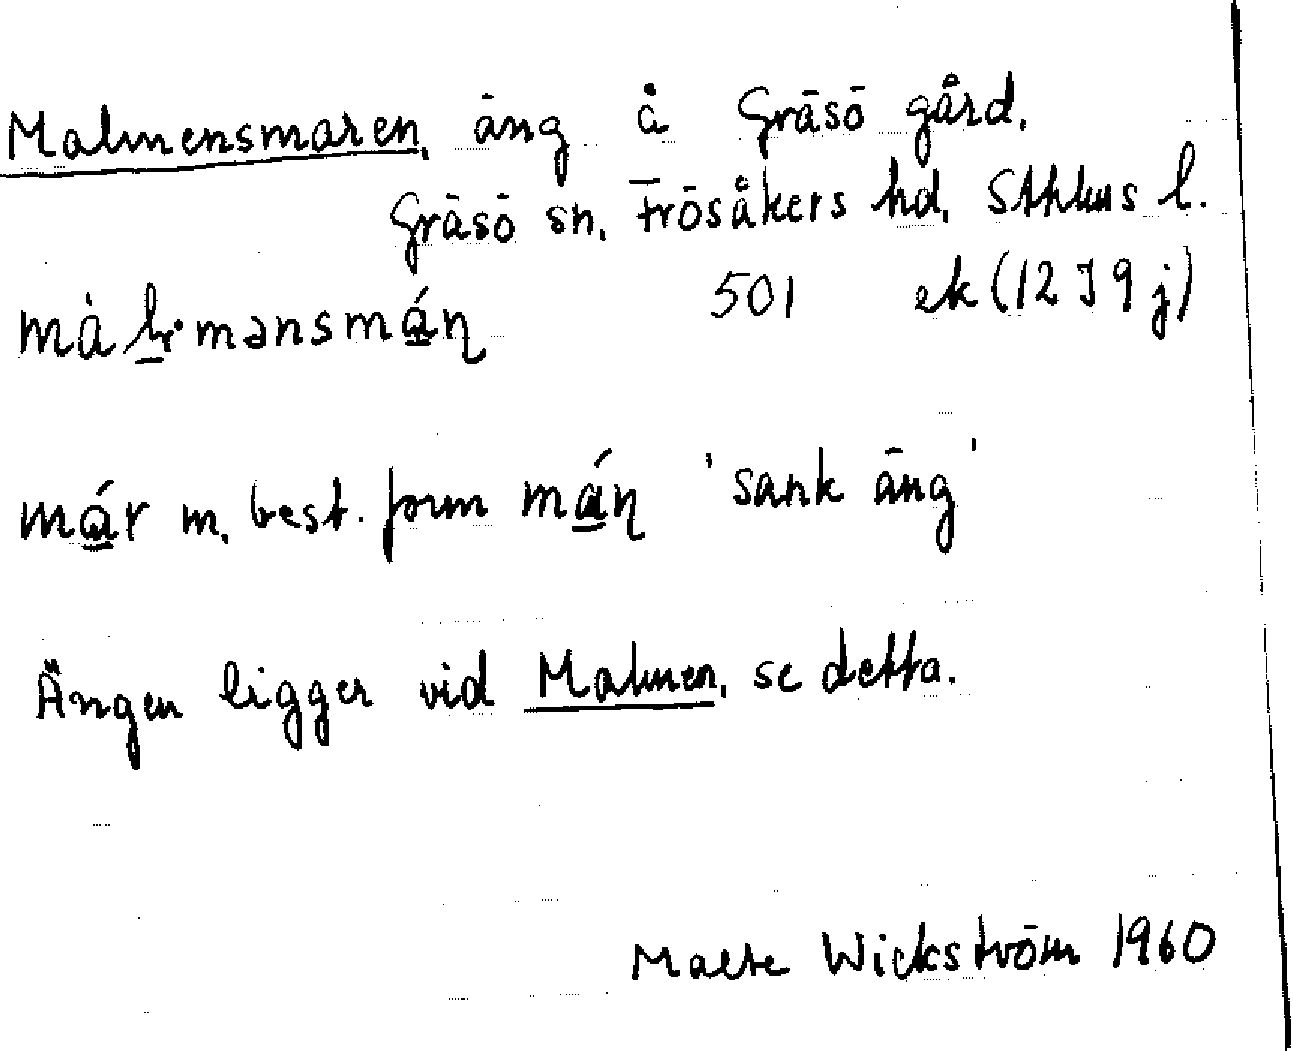 Malmensmaren, äng å Gräsö gård,
Gräsö sn, Frösåkers hd, Sthlms l.
501 ek (12 J 9 j)
màl̠·mənsmá̠ɳ
má̠r m. best. form má̠ɳ 'sank äng'
Ängen ligger vid Malmen, se detta.
Malte Wickström 1960